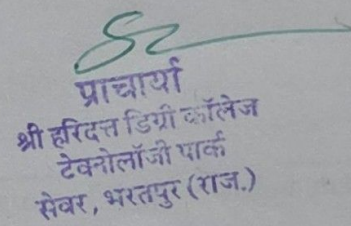 प्राचार्या
श्री हरिदत्त डिग्री कॉलेज
टेक्नोलॉजी पार्क
सेवर, भरतपुर (राज.)